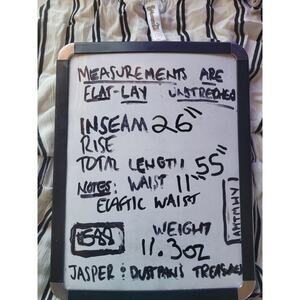 MEASUREMENTS ARE
FLAT-LAY UNSTRETCHED
INSEAM 26"
RISE
TOTAL LENGTH 55"
NOTES: WAIST 11"
ELASTIC WAIST
WEIGHT
11.3OZ
JASPER & DUSTPAN'S TREASURES